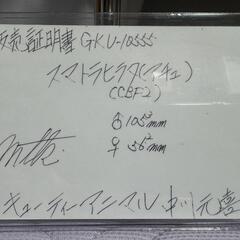 販売証明書 GKU-10555
スマトラヒラタ(アチェ)
(CBF2)
♂105³mm
♀56²mm
キューティーアニマル 中川元喜